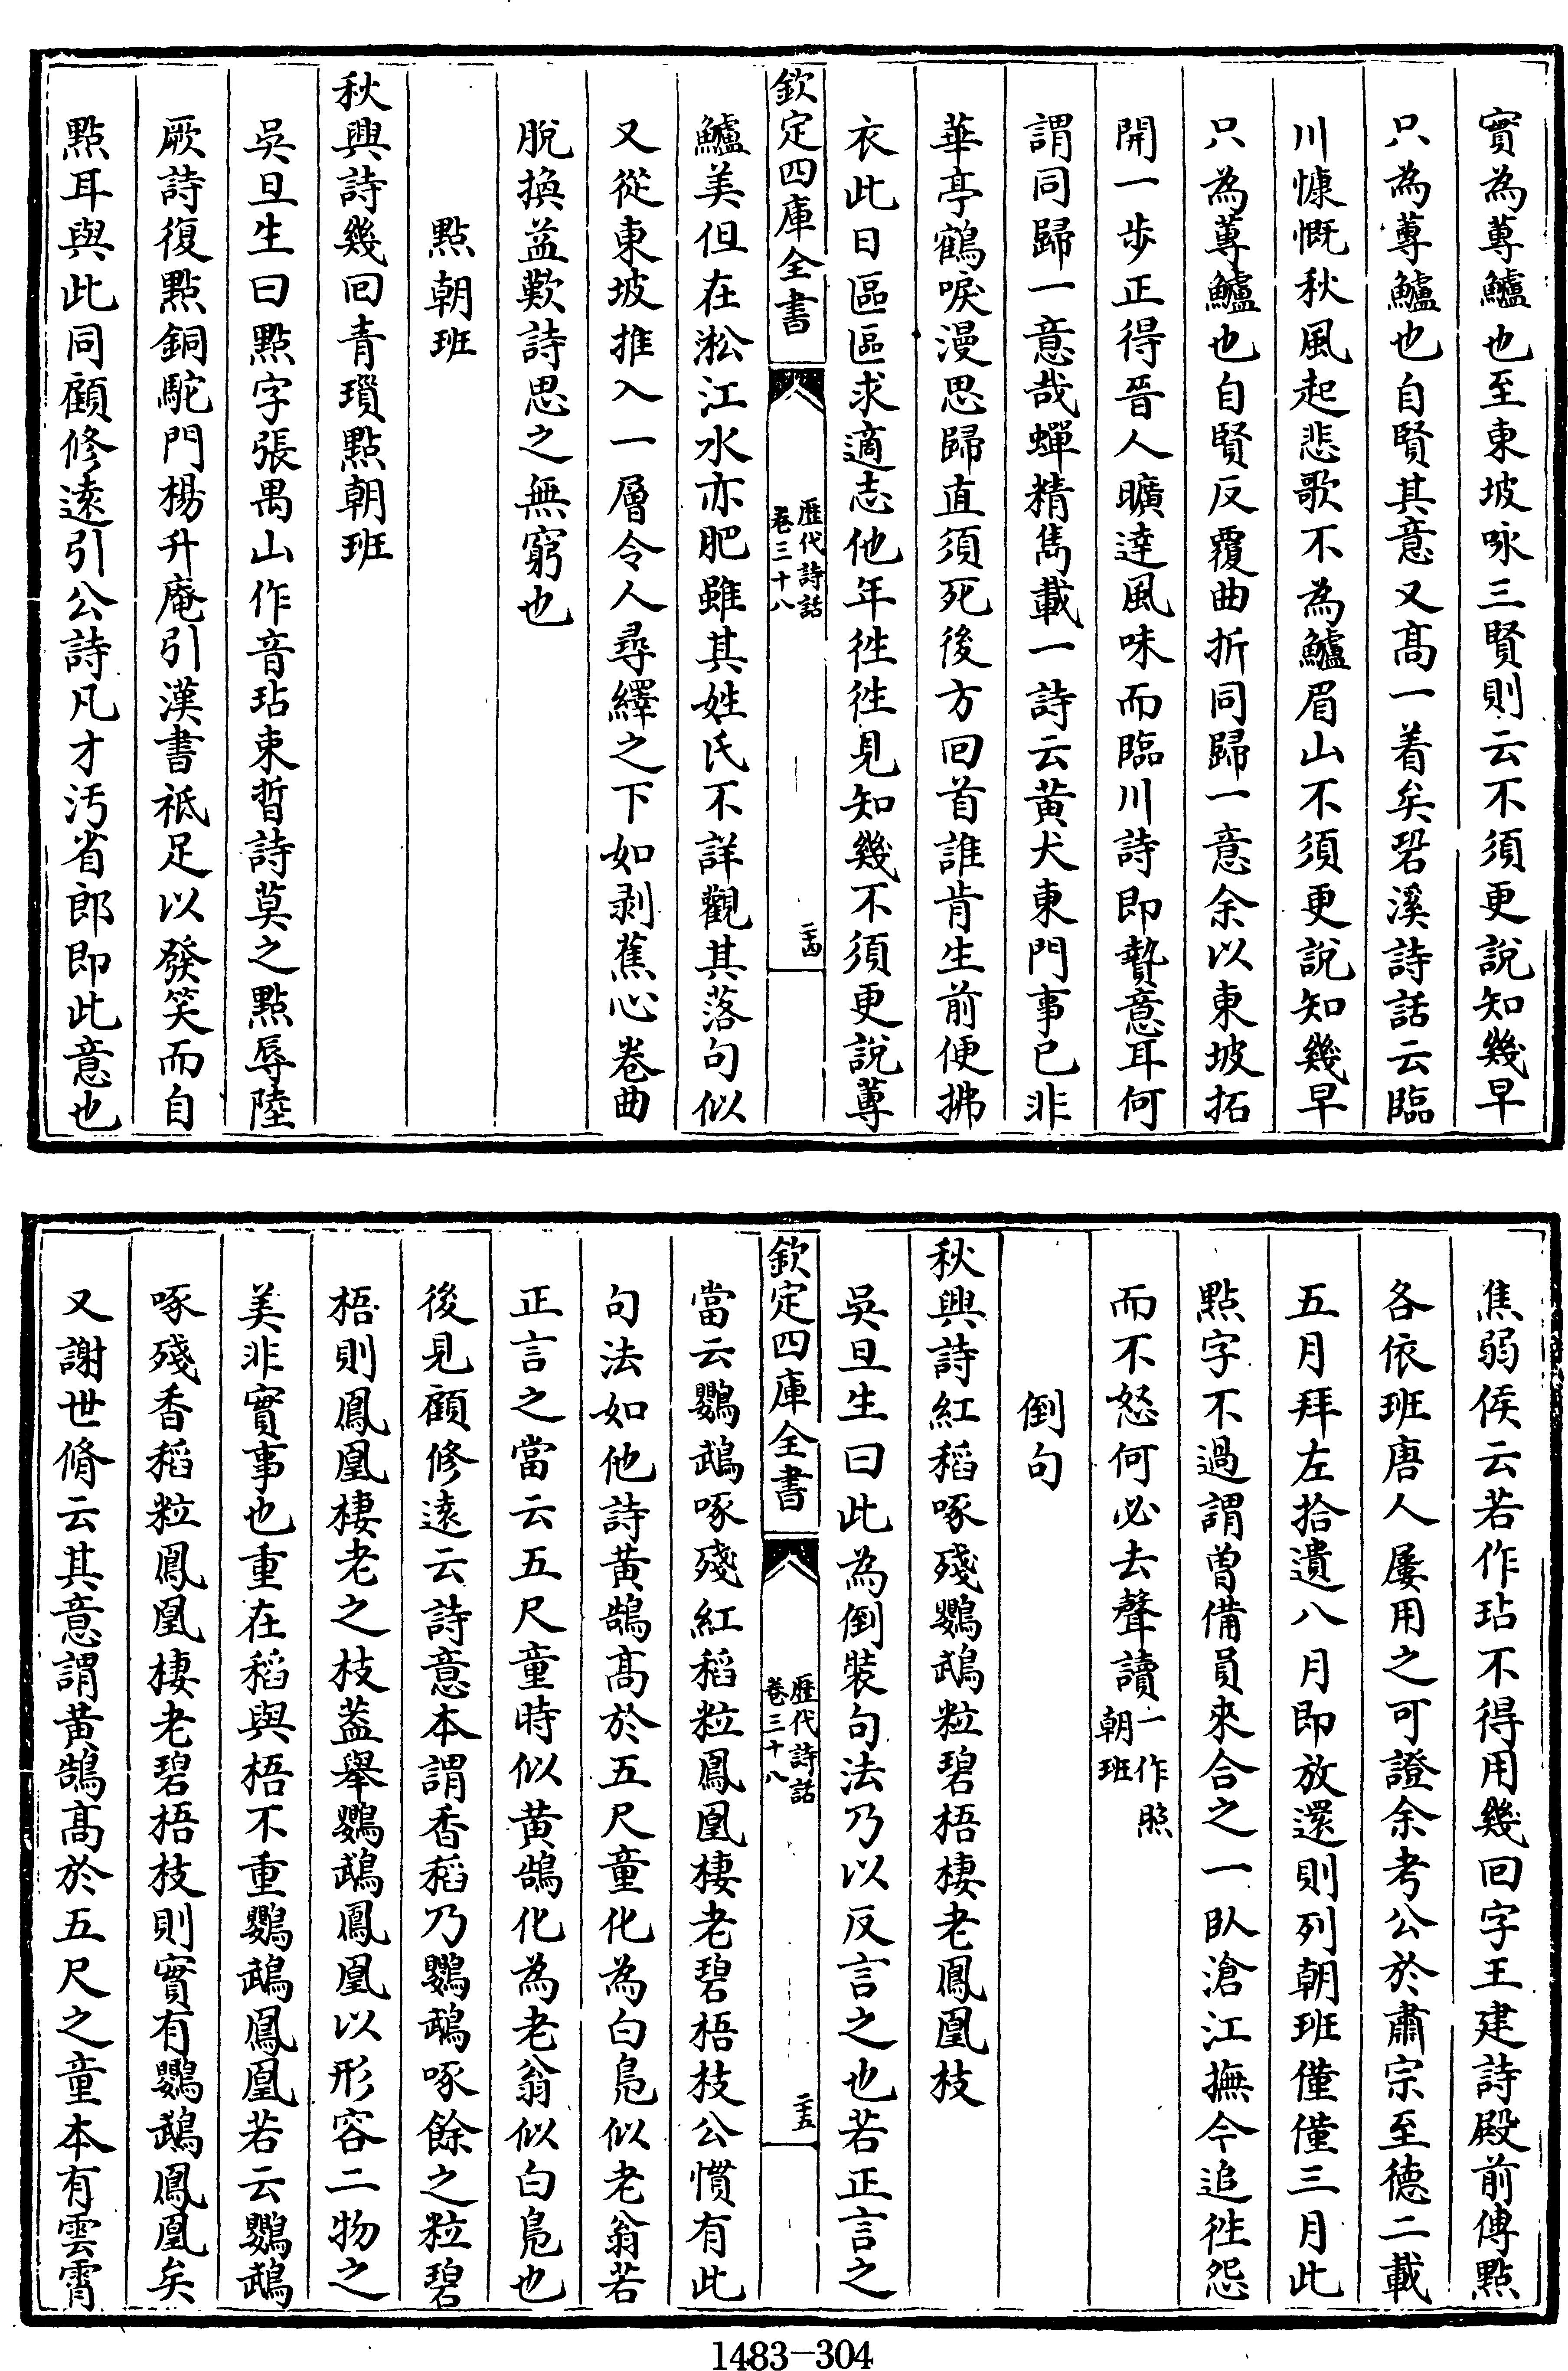 實為蓴鱸也至東坡咏三賢則云不須更說知幾早
只為蓴鱸也自賢其意又髙一着矣䂬溪詩話云臨
川慷慨秋風起悲歌不為鱸眉山不須更說知幾早
只為蓴鱸也自賢反覆曲折同歸一意余以東坡拓
開一步正得晉人曠達風味而臨川詩即贄意耳何
謂同歸一意哉蟬精雋載一詩云黄犬東門事已非
華亭鶴唳漫思歸直須死後方回首誰肯生前便拂
衣此日區區求適志他年徃徃見知幾不須更說蓴
欽定四庫全書
歴代詩話
卷三十八
二十四
鱸美但在淞江水亦肥雖其姓氏不詳觀其落句似
又從東坡推入一層令人尋繹之下如剥蕉心卷曲
脫換益歎詩思之無窮也
點朝班
秋興詩幾回青瑣點朝班
吳旦生曰點字張禺山作音玷束晢詩莫之點辱陸
厥詩復點銅駝門楊升庵引漢書祗足以發笑而自
點耳與此同顧修遠引公詩凡才汚省郎即此意也
焦弱侯云若作玷不得用幾回字王建詩殿前傳點
各依班唐人屢用之可證余考公於肅宗至徳二載
五月拜左拾遺八月即放還則列朝班僅僅三月此
點字不過謂曽備員來合之一卧滄江撫今追徃怨
而不怒何必去聲讀一作照朝班
倒句
秋興詩紅稻啄殘鸚鵡粒碧梧棲老鳳凰枝
吳旦生曰此為倒裝句法乃以反言之也若正言之
欽定四庫全書
歴代詩話
卷三十八
二十五
當云鸚鵡啄殘紅稻粒鳳凰棲老碧梧枝公慣有此
句法如他詩黄鵠髙於五尺童化為白鳬似老翁若
正言之當云五尺童時似黄鵠化為老翁似白鳬也
後見顧修遠云詩意本謂香稻乃鸚鵡啄餘之粒碧
梧則鳳凰棲老之枝葢舉鸚鵡鳳凰以形容二物之
美非實事也重在稻與梧不重鸚鵡鳳凰若云鸚鵡
啄殘香稻粒鳳凰棲老碧梧枝則實有鸚鵡鳳凰矣
又謝世脩云其意謂黄鵠髙於五尺之童本有雲霄
1483-304